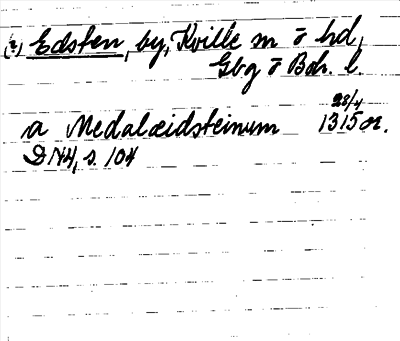 (?) Edsten, by, Kville sn o hd,
Gbg o Boh. l.
28/4
a Medalæidsteinum 1315 or.
DN4, s. 104